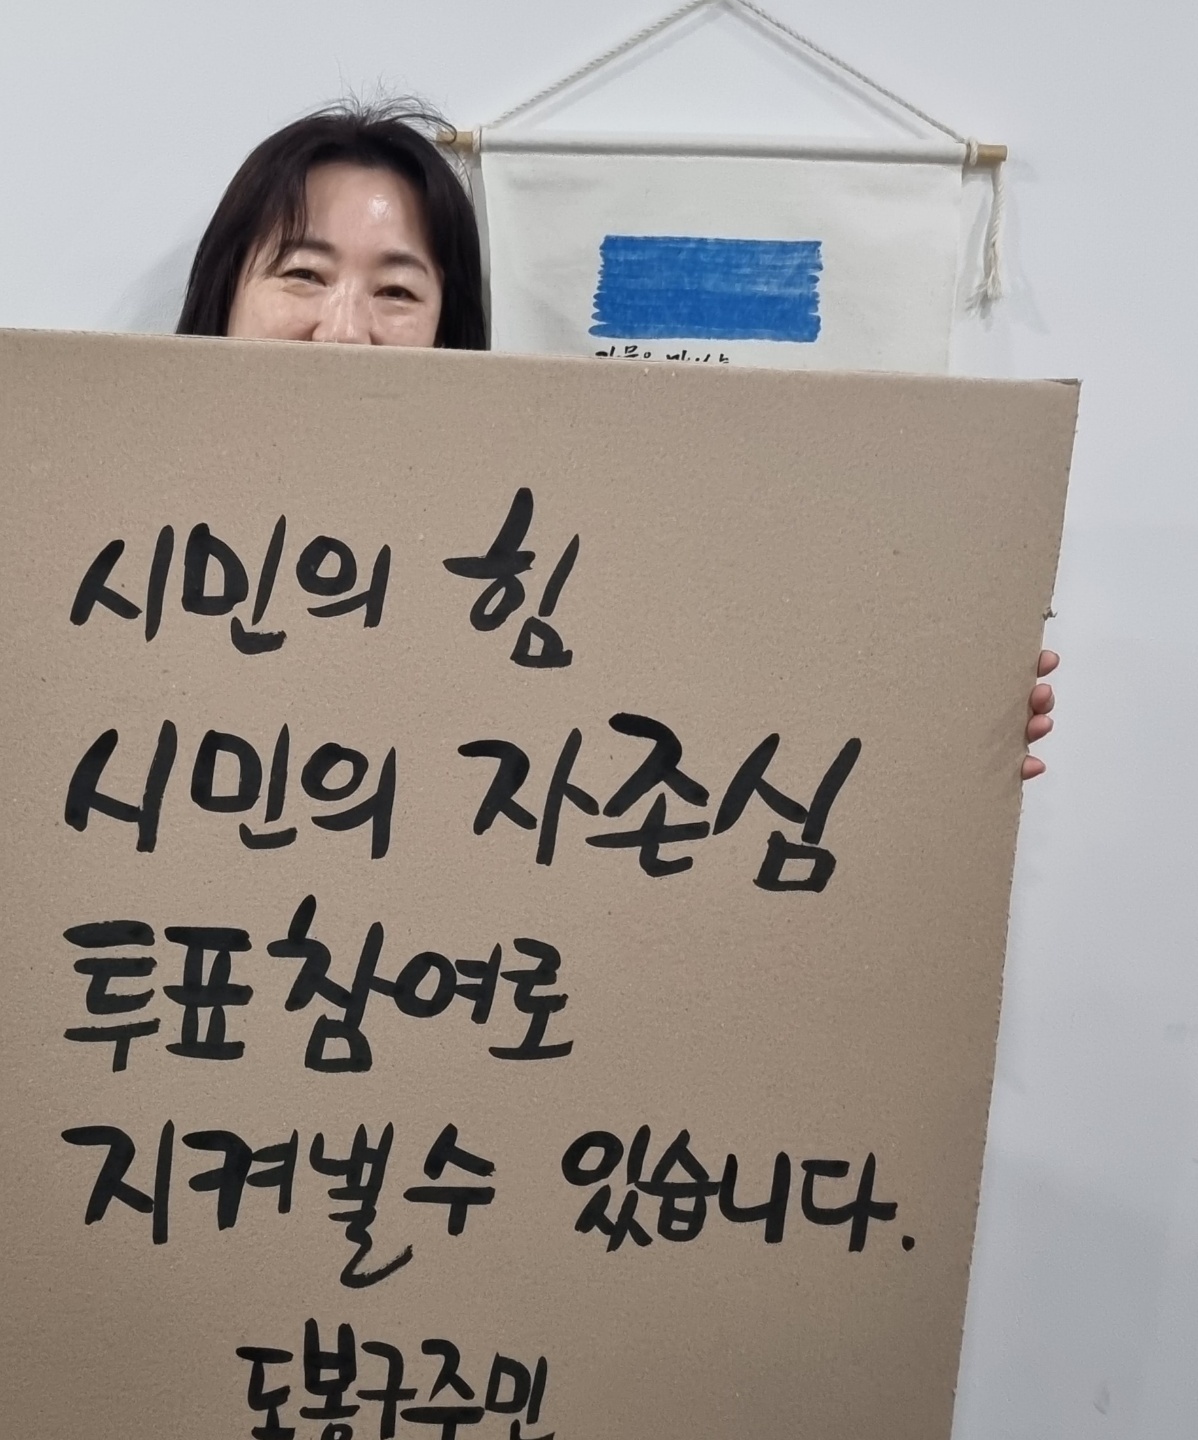 시민의 힘
시민의 자존심
투표참여로
지켜낼수 있습니다.
도봉구주민